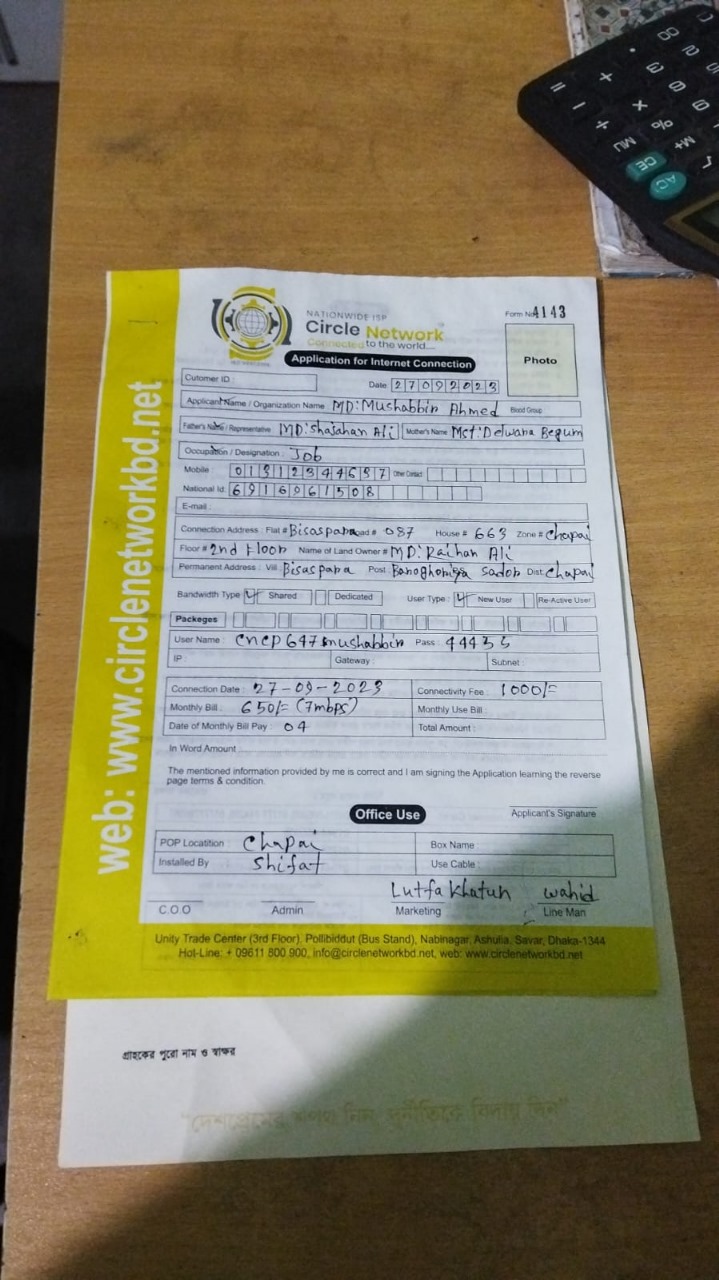 NATIONWIDE ISP
Circle Network
Connected to the world....
Form No 4143
Application for Internet Connection
Photo
Cutomer ID :
Date: 27092023
Applicant Name / Organization Name MD: Mushabbir Ahmed Blood Group
Father's Name / Representative MD: Shajahan Ali Mother's Name Mst: Delwara Begum
Occupation / Designation : Job
Mobile : Other Contact
National Id: 6916961508
E-mail :
Connection Address : Flat # Bisaspara Road # 087 House # 663 Zone # Chapai
Floor # 2nd Floor Name of Land Owner # MD: Raihan Ali
Permanent Address : Vill: Bisaspara Post : Sador Dist: Chapai
Bandwidth Type Shared Dedicated User Type : New User Re-Active User
Packeges
User Name : CNCP647mushabbir Pass : 44455
IP : Gateway : Subnet :
Connection Date : 27-09-2023 Connectivity Fee : 1000/=
Monthly Bill : 650/= (7mbps) Monthly Use Bill :
Date of Monthly Bill Pay : 04 Total Amount :
In Word Amount :
The mentioned information provided by me is correct and I am signing the Application learning the reverse
page terms & condition.
Office Use
Applicant's Signature
POP Locatition : Chapai Box Name
Installed By Shifat Use Cable :
Lutfa Khatun wahid
C.O.O Admin Marketing Line Man
Unity Trade Center (3rd Floor), Pollibiddut (Bus Stand), Nabinagar, Ashulia, Savar, Dhaka-1344
Hot-Line: + 09611 800 900, info@circlenetworkbd.net, web: www.circlenetworkbd.net
web: www.circlenetworkbd.net
গ্রাহকের পুরো নাম ও স্বাক্ষর
"দেশপ্রেমের শপথ নিন, দুর্নীতিকে বিদায় দিন"
CE
AC
M+
MU
%